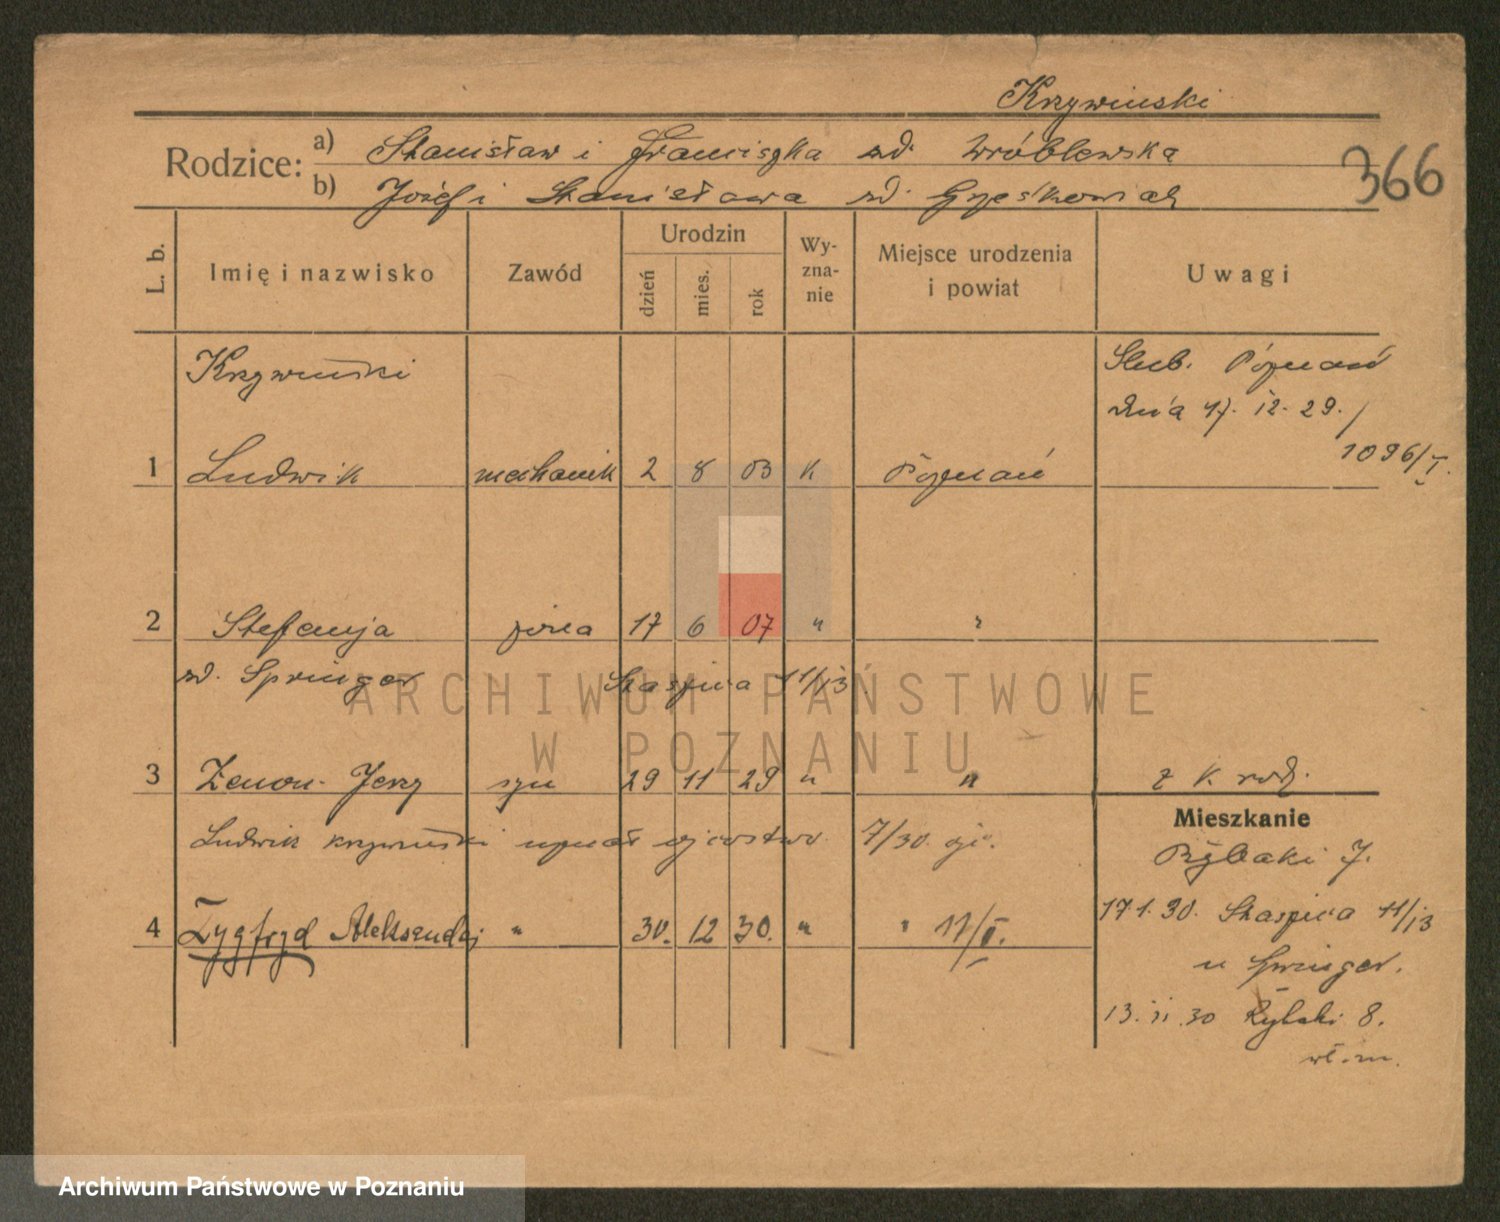 Krzywiński
366
Rodzice: a) Stanisław i Franciszka zd. Wróblewska
b) Józef i Stanisława zd. Grześkowiak
L. b. Imię i nazwisko Zawód Urodzin dzień mies. rok Wy-zna-nie Miejsce urodzenia i powiat Uwagi
Krzywiński
Ślub. Poznań
dnia 17. 12. 29. /
1096/I.
1 Ludwik mechanik 2 8 03 k Poznań
2 Stefanja żona 17 6 07 " "
zd. Springer Staszica 11/13
3 Zenon-Jerzy syn 29 11 29 " " z k rodz.
Ludwik Krzywiński uznał ojcostwo. 7/30.
4 Zygfryd Aleksander " 30. 12 30. " " 17/I.
Mieszkanie
Rybaki 7.
17 1. 30. Staszica 11/13
u Springer.
13. 11. 30 Rybaki 8.
wł. m.
ARCHIWUM PAŃSTWOWE
W POZNANIU
Archiwum Państwowe w Poznaniu